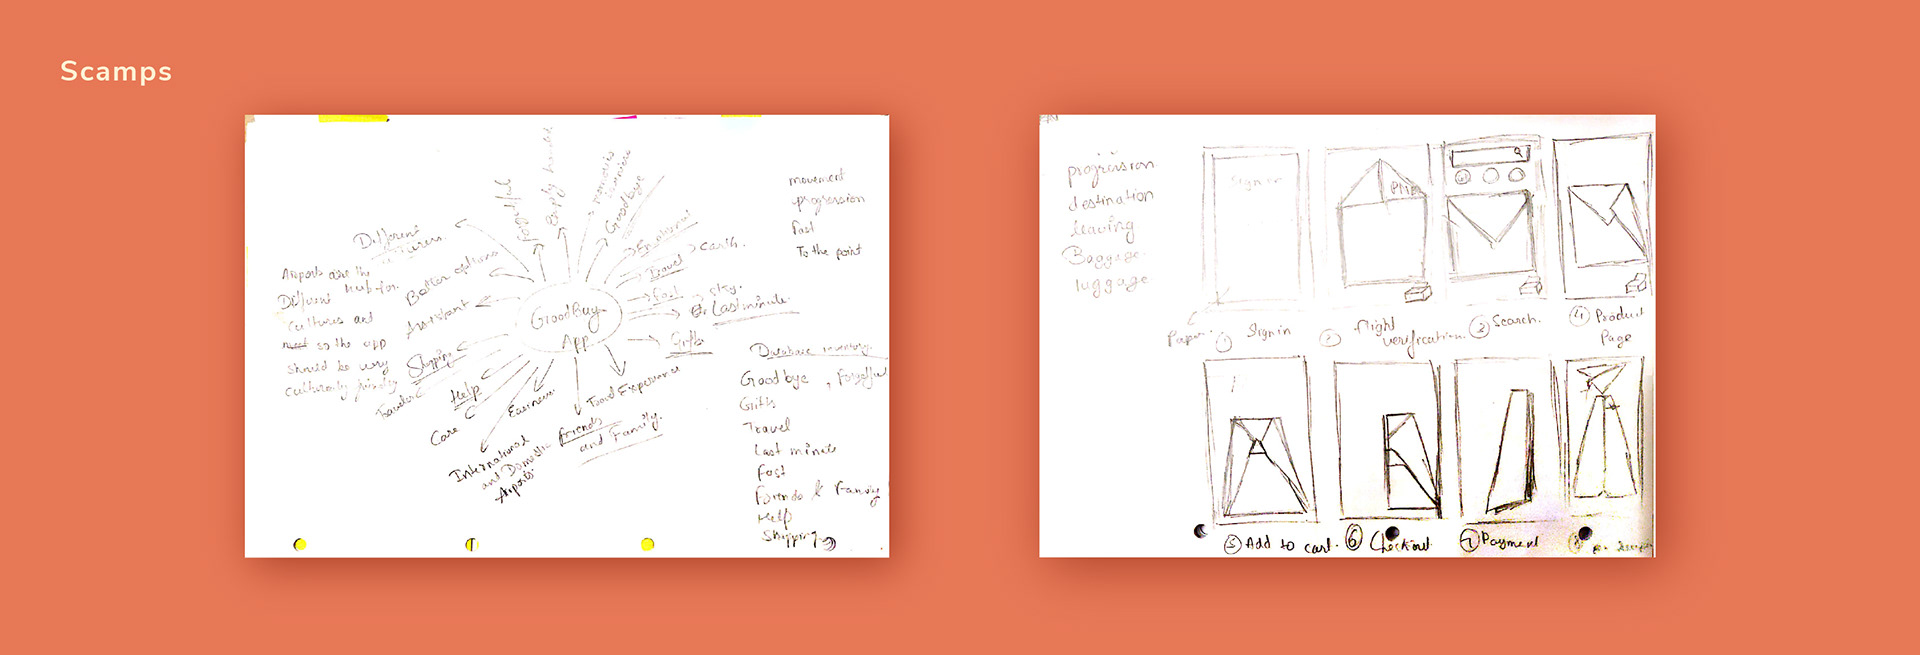 Scamps
GoodBuy
App
Different
cultures.
Better options
Assistant
Shopping
Traveler
Help
Care
Easiness
International
and Domestic
Airports
friends
and Family.
Travel Experience
Gifts
Last minute.
fast
sky.
Travel
earth.
Emotional
Goodbye
Empty handed
forgetful
Airports are the
Different hub for
cultures and
so the app
should be very
culturally
movement
progression
fast
To the point
Database inventory.
Goodbye,
Gifts
Travel
Last minute
fast
friends & Family
Help
Shopping
progression
destination
leaving
Baggage.
luggage
Sign in
Paper
① Sign in
② flight
verification
③ Search.
④ Product
Page
⑤ Add to cart.
⑥ Checkout
⑦ Payment
⑧